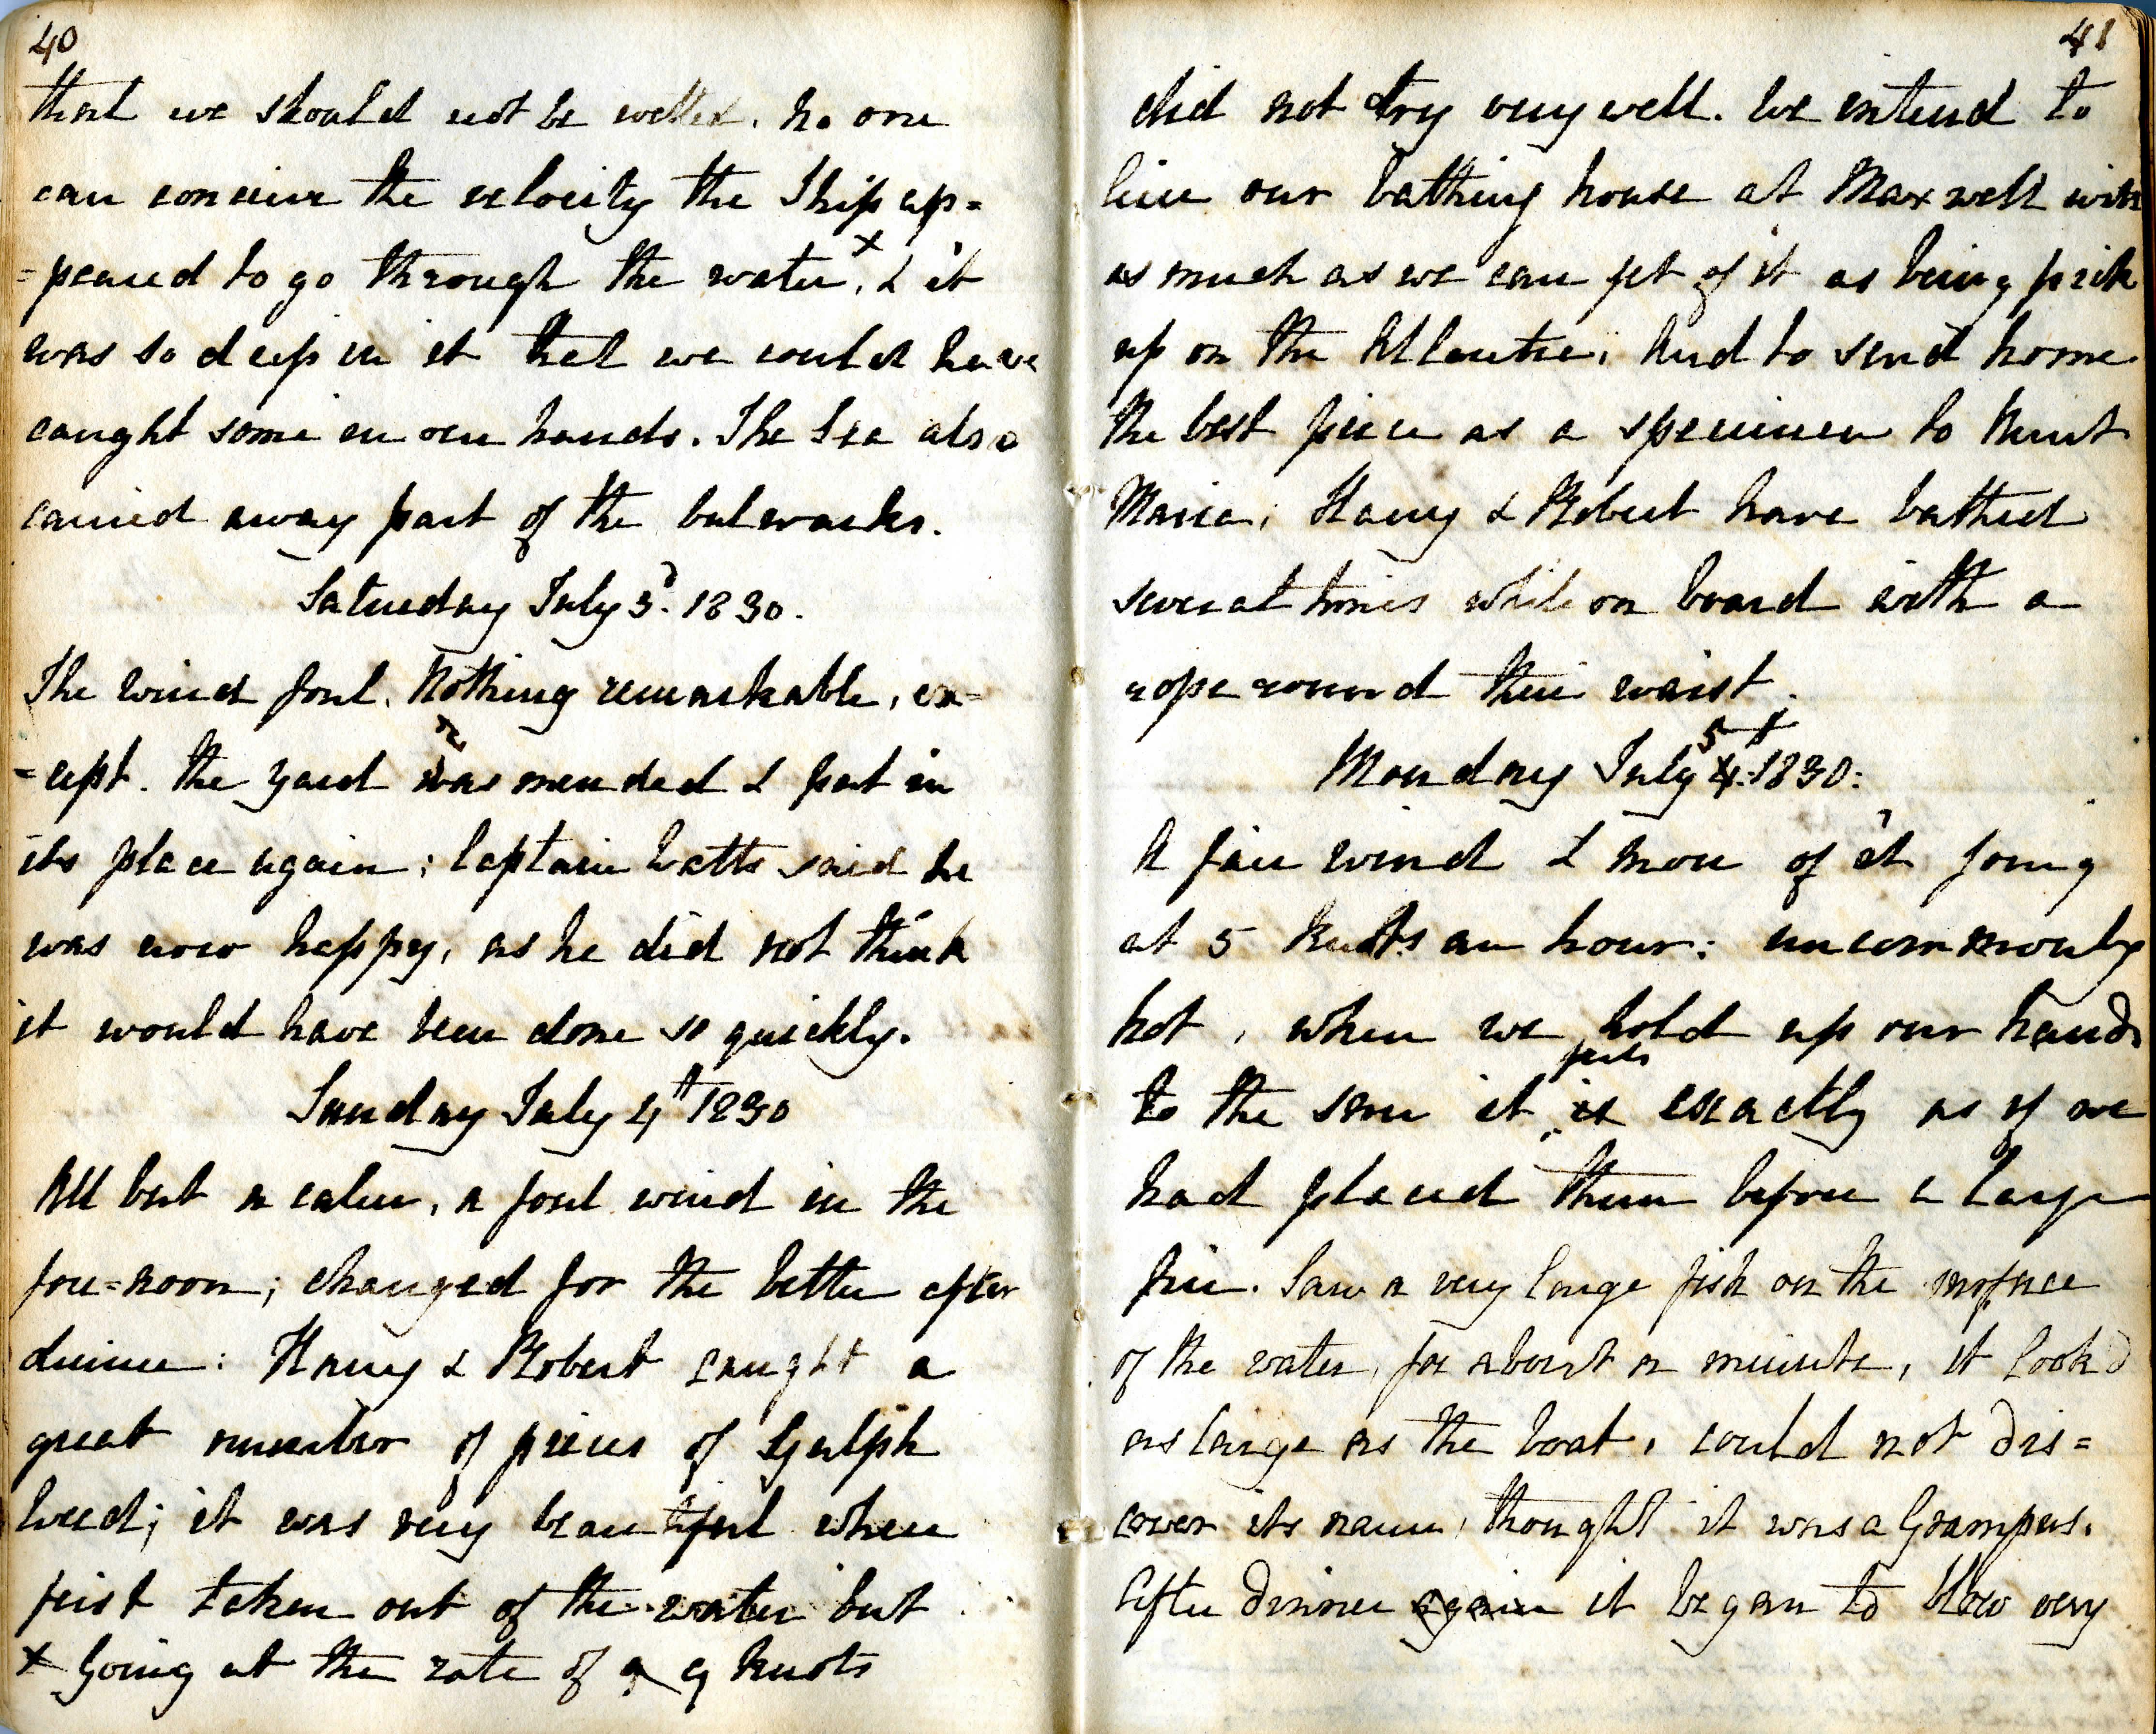 40
that we should not be wetted. No one
can conceive the velocity the Ship ap=
=peared to go through the water, x & it
was so deep in it that we could have
caught some in our hands. The Sea also
carried away part of the bulwarks.
Saturday July 3d. 1830.
The wind foul. Nothing remarkable, ex=
=cept. the yard was mended & put in
its place again; Captain Watts said he
was now happy, as he did not think
it would have been done so quickly.
Sunday July 4th 1830
All but a calm, a foul wind in the
fore=noon; changed for the better after
dinner: Harry & Robert caught a
great number of pieces of Gulph
Weed; it was very beautiful when
first taken out of the water but
x Going at the rate of 9 knots
41
did not dry very well. We intend to
line our bathing house at Maxwell with
as much as we can get of it as being pick
up on the Atlantic; And to send home
the best piece as a specimen to Aunt
Maria; Harry & Robert have bathed
several times while on board with a
rope round their waist.
Monday July 5th 4. 1830:
A fair wind & more of it going
at 5 knots an hour: uncommonly
hot, when we hold up our hands
feels
to the sun it is exactly as if we
had placed them before a large
fire. Saw a very large fish on the surface
of the water, for about a minute, it look'd
as large as the boat, could not dis=
cover its name, thought it was a Grampus.
After dinner again it began to blow very